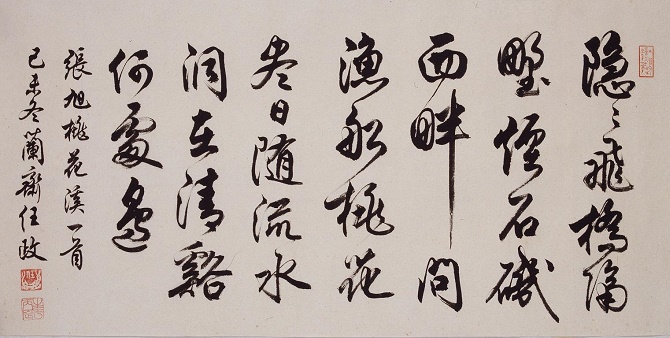 隐〻飛橋隔
野煙石磯
西畔問
漁船桃花
盡日随流水
洞在清谿
何處邊
張旭桃花溪一首
己未冬蘭齋任政